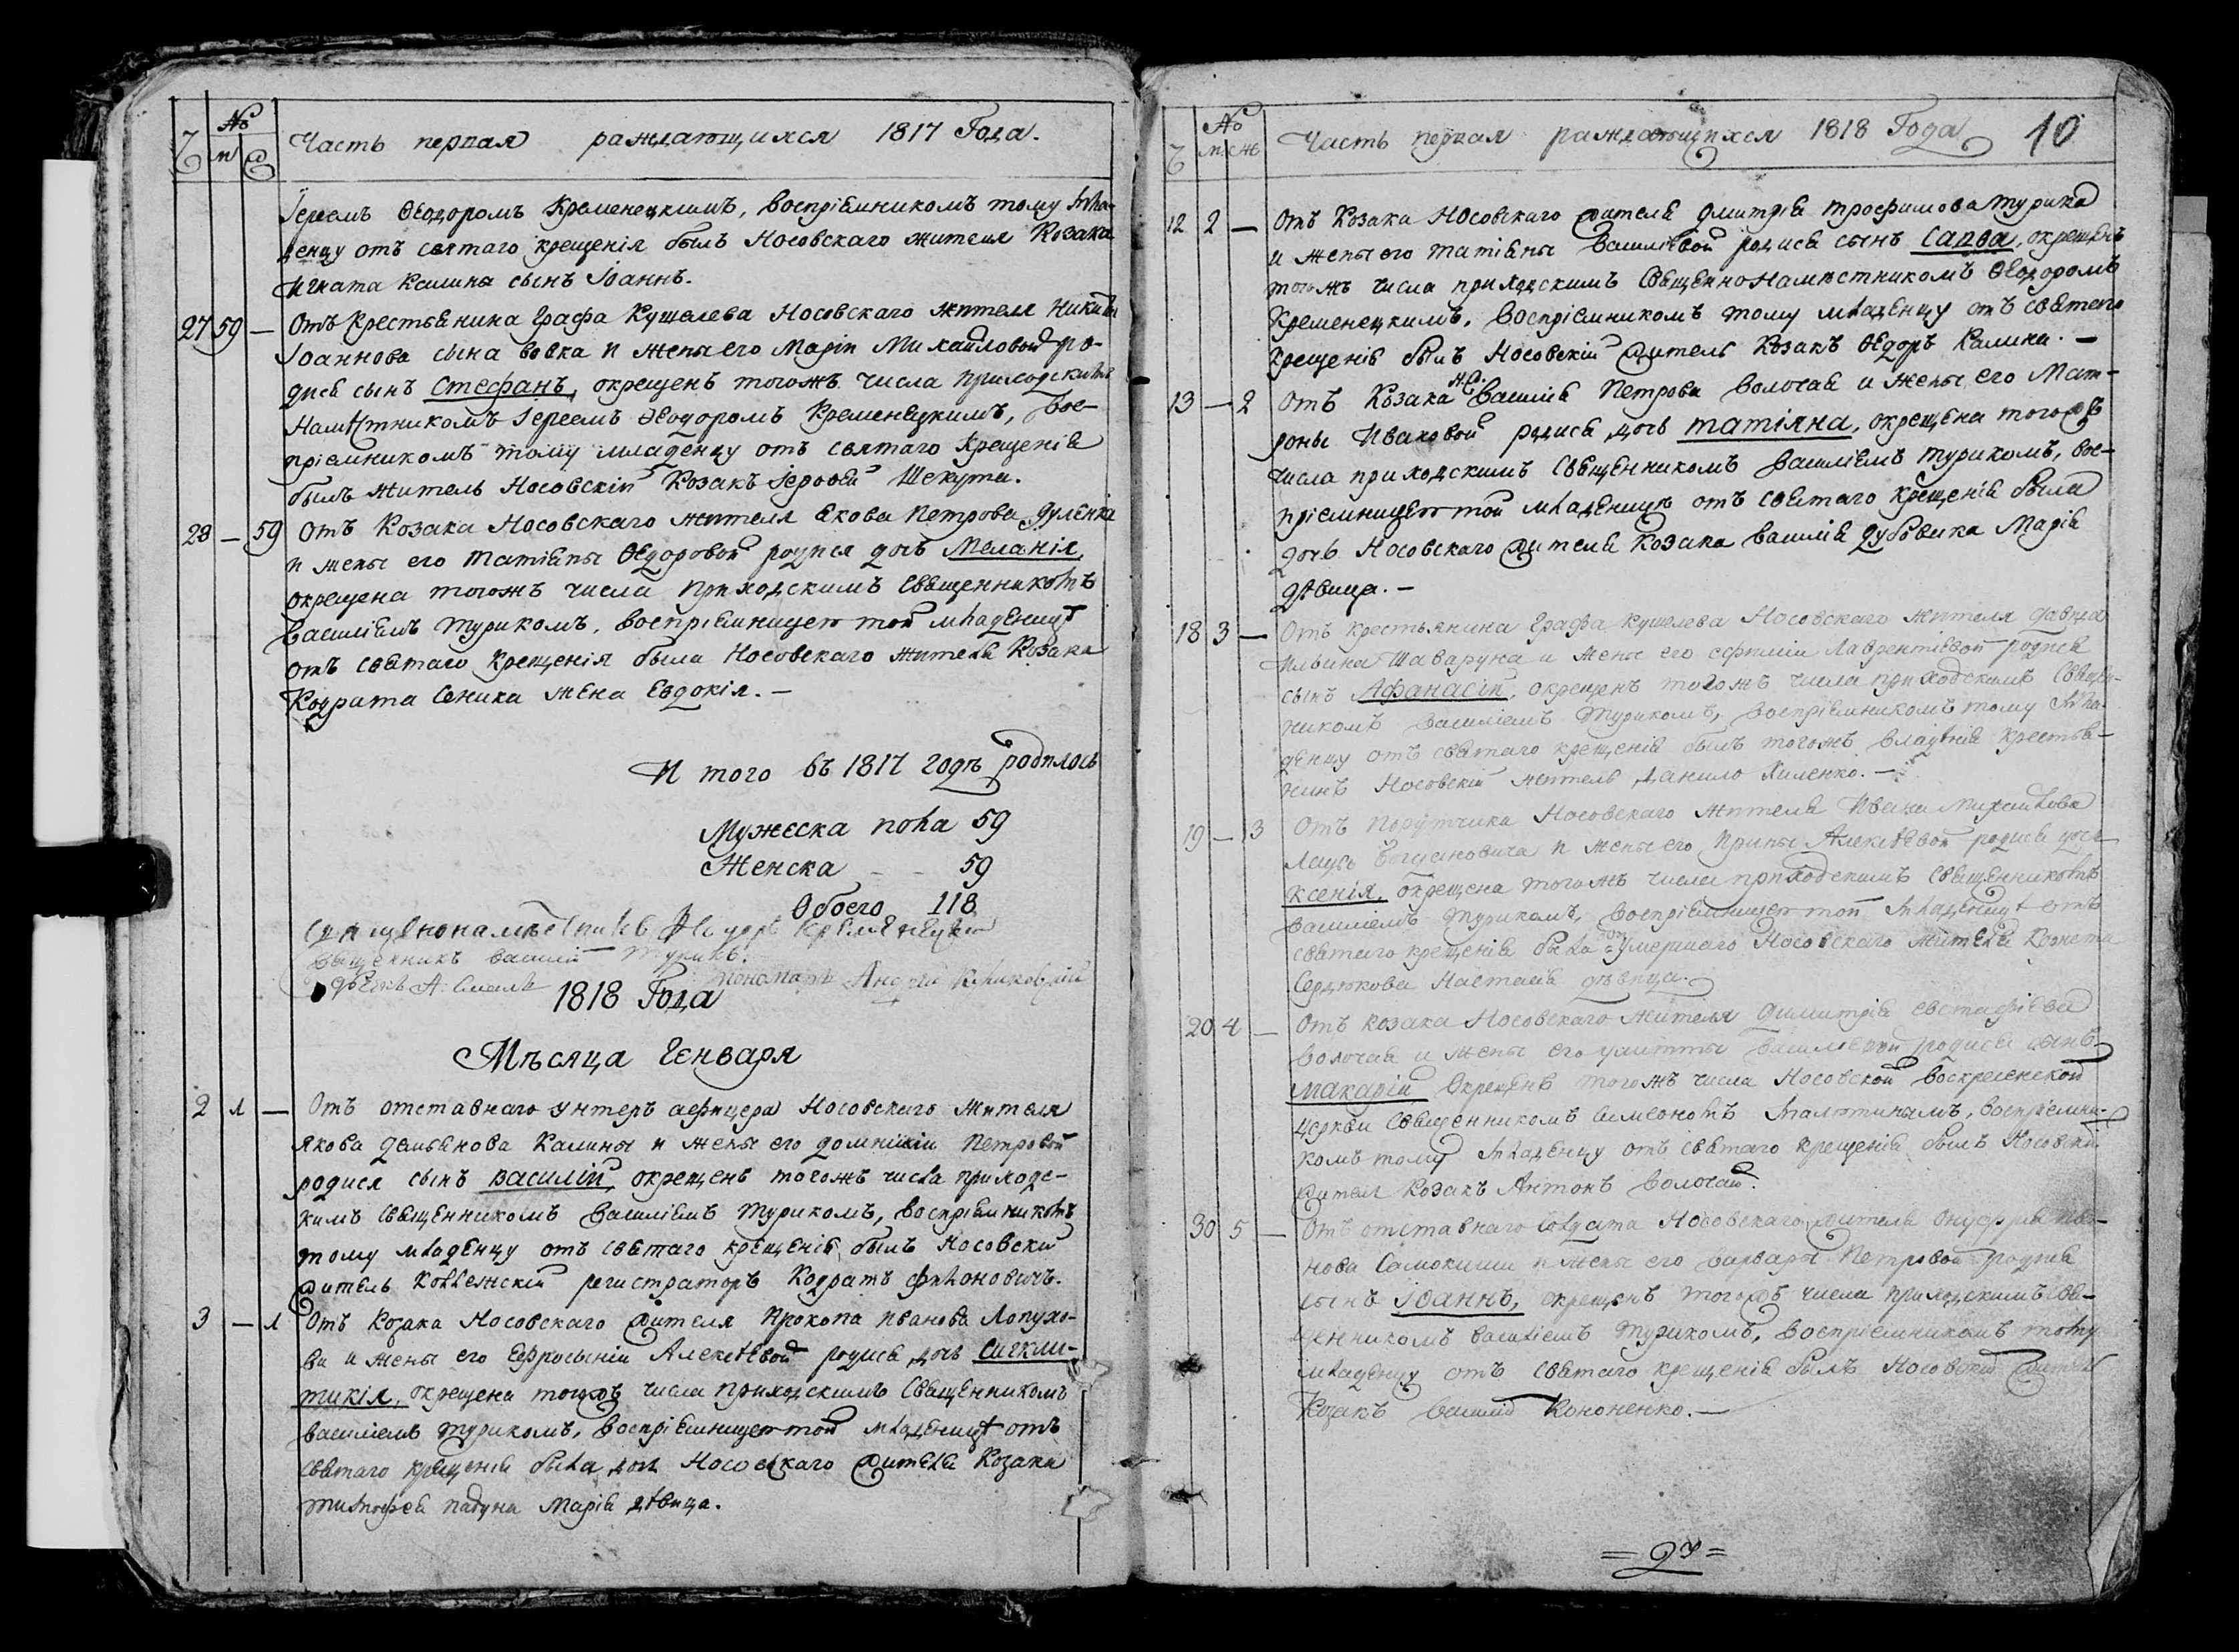 №
Ч м ж Часть первая раждающихся 1817 Года.
Іереемъ Ѳеодоромъ Кременецкимъ, воспріемникомъ тому мла-
денцу отъ святаго крещенія былъ Носовскаго жителя Козака
Игната Калины сынъ Іоаннъ.
27 59 — Отъ крестьянина Графа Кушелева Носовскаго жителя Никиты
Іоаннова сына Вовка и жены его Маріи Михайловой ро-
дися сынъ Стефанъ, окрещенъ тогожъ числа приходскимъ
Намѣстникомъ Іереемъ Ѳеодоромъ Кременецкимъ, Вос-
пріемникомъ тому младенцу отъ святаго Крещенія
былъ житель Носовскій Козакъ Іерофей Шекута.
28 — 59 Отъ Козака Носовскаго жителя Якова Петрова Дуленка
и жены его Татіяны Ѳедоровой родися дочь Меланія,
окрещена тогожъ числа приходскимъ Священникомъ
Василіемъ Турикомъ, воспріемницею той младеницѣ
отъ святаго крещенія была Носовскаго жителя Козака
Кодрата Сеника жена Евдокія. —
И того въ 1817 годѣ родилось
Мужеска пола 59
Женска - - 59
Обоего 118
Священнонамѣстникъ Ѳеодоръ Кременецкій
Священникъ Василій Турикъ.
Пономарь Андрей
1818 Года
Мѣсяца Генваря
2 1 — Отъ отставнаго унтеръ афицера Носовскаго жителя
Якова Демьянова Калины и жены его Домнікіи Петровой
родися сынъ Василій, окрещенъ тогожъ числа приходс-
кимъ Священникомъ Василіемъ Турикомъ, воспріемникомъ
тому младенцу отъ святаго крещенія былъ Носовскій
житель Коллежскій регистраторъ Кодратъ Филоновичъ.
3 — 1 Отъ Козака Носовскаго жителя Прокопа Иванова Лопухо-
ви и жены его Ефросыніи Алексѣевой родися дочь Сигкли-
тикія, окрещена тогожъ числа приходскимъ Священникомъ
Василіемъ Турикомъ, воспріемницею той младеницѣ отъ
святаго крещенія была дочь Носовскаго жителя Козака
Тимофея Падуна Марія дѣвица.
№
Ч м ж Часть первая раждающихся 1818 Года 10
12 2 — Отъ Козака Носовскаго жителя Дмитрія Трофимова Турика
и жены его Татіяны Василіевой родися сынъ Савва, окрещенъ
тогожъ числа приходскимъ Священнонамѣстникомъ Ѳеодоромъ
Кременецкимъ, воспріемникомъ тому младенцу отъ святаго
Крещенія былъ Носовскій житель Козакъ Ѳедоръ Калина. —
13 — 2 Отъ Козака Н.Ж. Василія Петрова Волочая и жены его Мат-
роны Ивановой родися дочь Татіяна, окрещена тогожъ
числа приходскимъ Священникомъ Василіемъ Турикомъ, вос-
пріемницею той младеницѣ отъ святаго крещенія была
дочь Носовскаго жителя Козака Василія Дубовика Марія
дѣвица. —
18 3 — Отъ крестьянина Графа Кушелева Носовскаго жителя Давида
Ильина Шаварука и жены его Евфиміи Лаврентіевой родися
сынъ Афанасій, окрещенъ тогожъ числа приходскимъ Священ-
никомъ Василіемъ Турикомъ, воспріемникомъ тому мла-
денцу отъ святаго крещенія былъ тогожъ владѣнія крестья-
нинъ Носовскій житель Данило Хиленко. —
19 — 3 Отъ Порутчика Носовскаго жителя Ивана Михайлова
Богдановича и жены его Ирины Алексѣевой родися дочь
Ксенія, окрещена тогожъ числа приходскимъ Священникомъ
Василіемъ Турикомъ, воспріемницею той младеницѣ отъ
святаго крещенія была умершаго Носовскаго жителя Корнета
Сердюкова Настасія дѣвица.
20 4 — Отъ Козака Носовскаго жителя Димитрія Евстафіева
Волочая и жены его Улитты Василіевой родися сынъ
Макарій окрещенъ тогожъ числа Носовской Воскресенской
церкви Священникомъ Симеономъ Малютинымъ, воспріемни-
комъ тому младенцу отъ святаго крещенія былъ Носовскій
житель Козакъ Антонъ Волочай.
30 5 — Отъ отставнаго Солдата Носовскаго жителя Онуфрія Ива-
нова Самокиши и жены его Варвары Петровой родися
сынъ Іоаннъ, окрещенъ тогожъ числа приходскимъ Свя-
щенникомъ Василіемъ Турикомъ, воспріемникомъ тому
младенцу отъ святаго крещенія былъ Носовскій житель
Козакъ Василій Кононенко. —